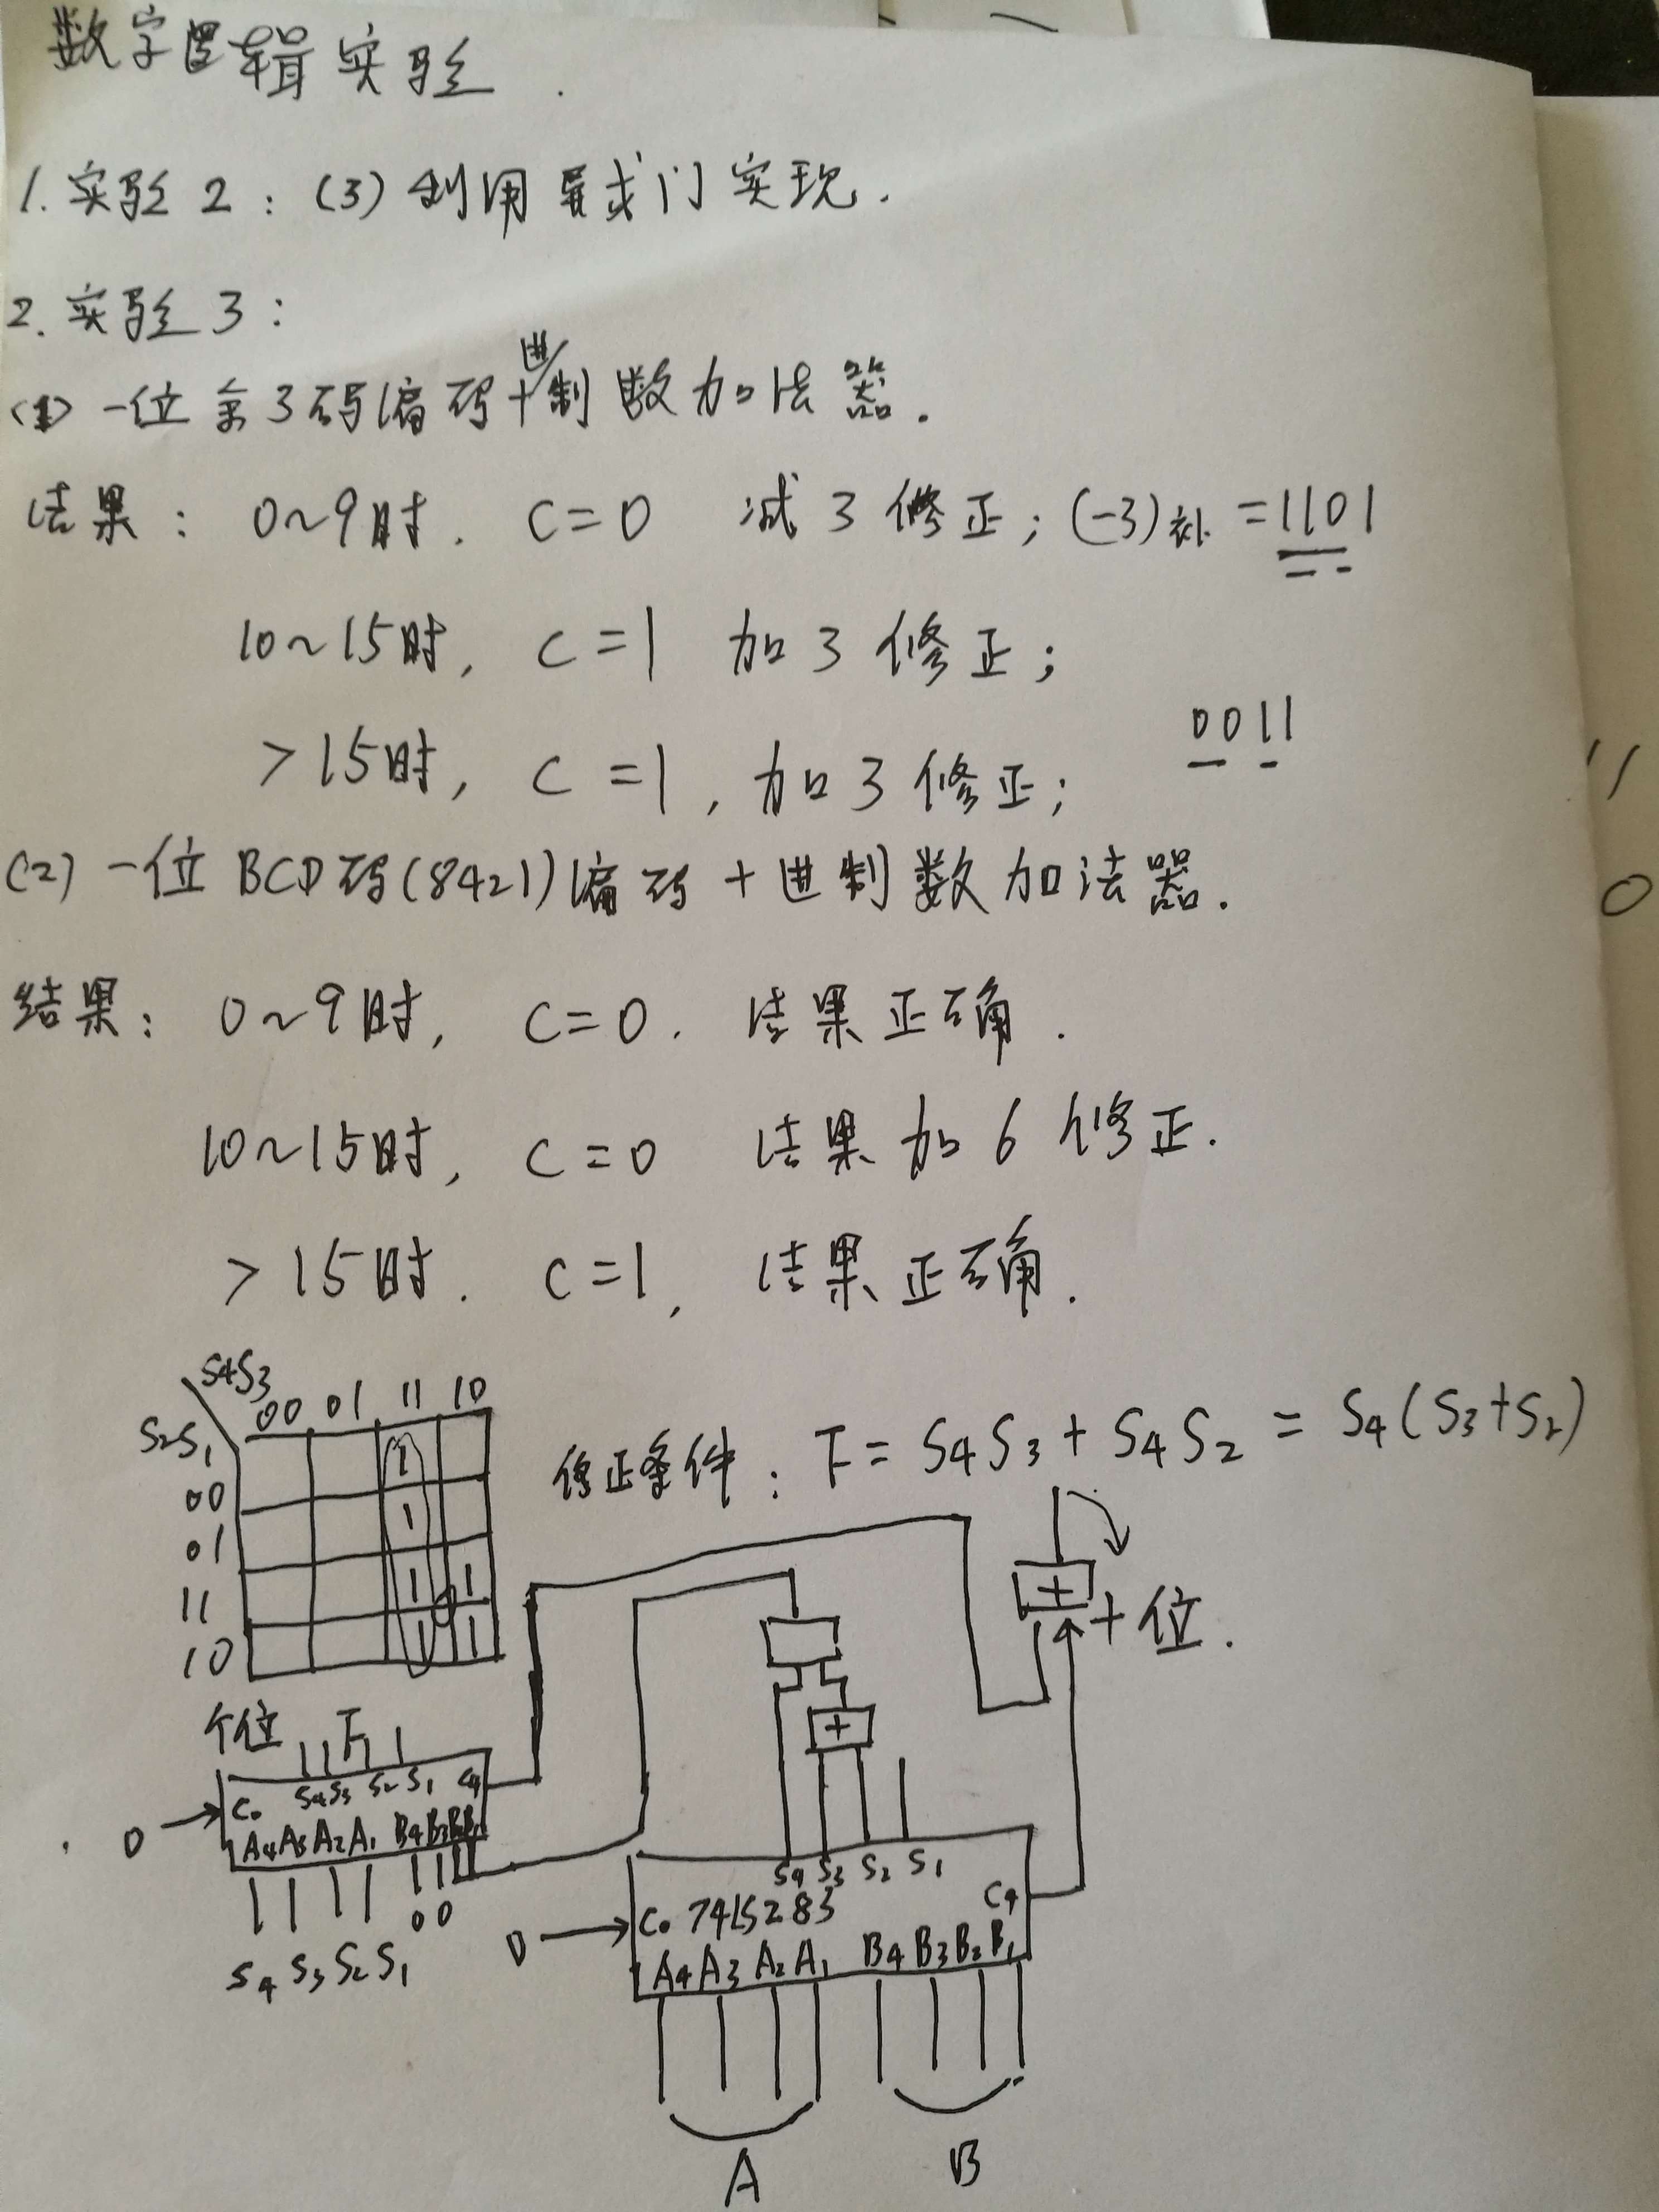 数字逻辑实验.
1. 实验2：(3)利用异或门实现.
2. 实验3：
(1) 一位余3码编码十进制数加法器.
结果： 0~9时. C=0 减3修正; (-3)补 =1101
10~15时, C=1 加3修正;
0011
>15时, C=1, 加3修正;
(2) 一位BCD码(8421)编码十进制数加法器.
结果： 0~9时, C=0. 结果正确.
10~15时, C=0 结果加6修正.
>15时. C=1, 结果正确.
S4S3
00 01 11 10
S2S1
00 1
01 1
11 1 1
10 1 1
修正条件：F=S4S3+S4S2=S4(S3+S2)
+
十位.
+
个位 F
C0 S4 S3 S2 S1 C4
0
A4 A3 A2 A1 B4 B3 B2 B1
0 0
S4 S3 S2 S1
S4 S3 S2 S1
0 C0 74LS283 C4
A4 A3 A2 A1 B4 B3 B2 B1
A B